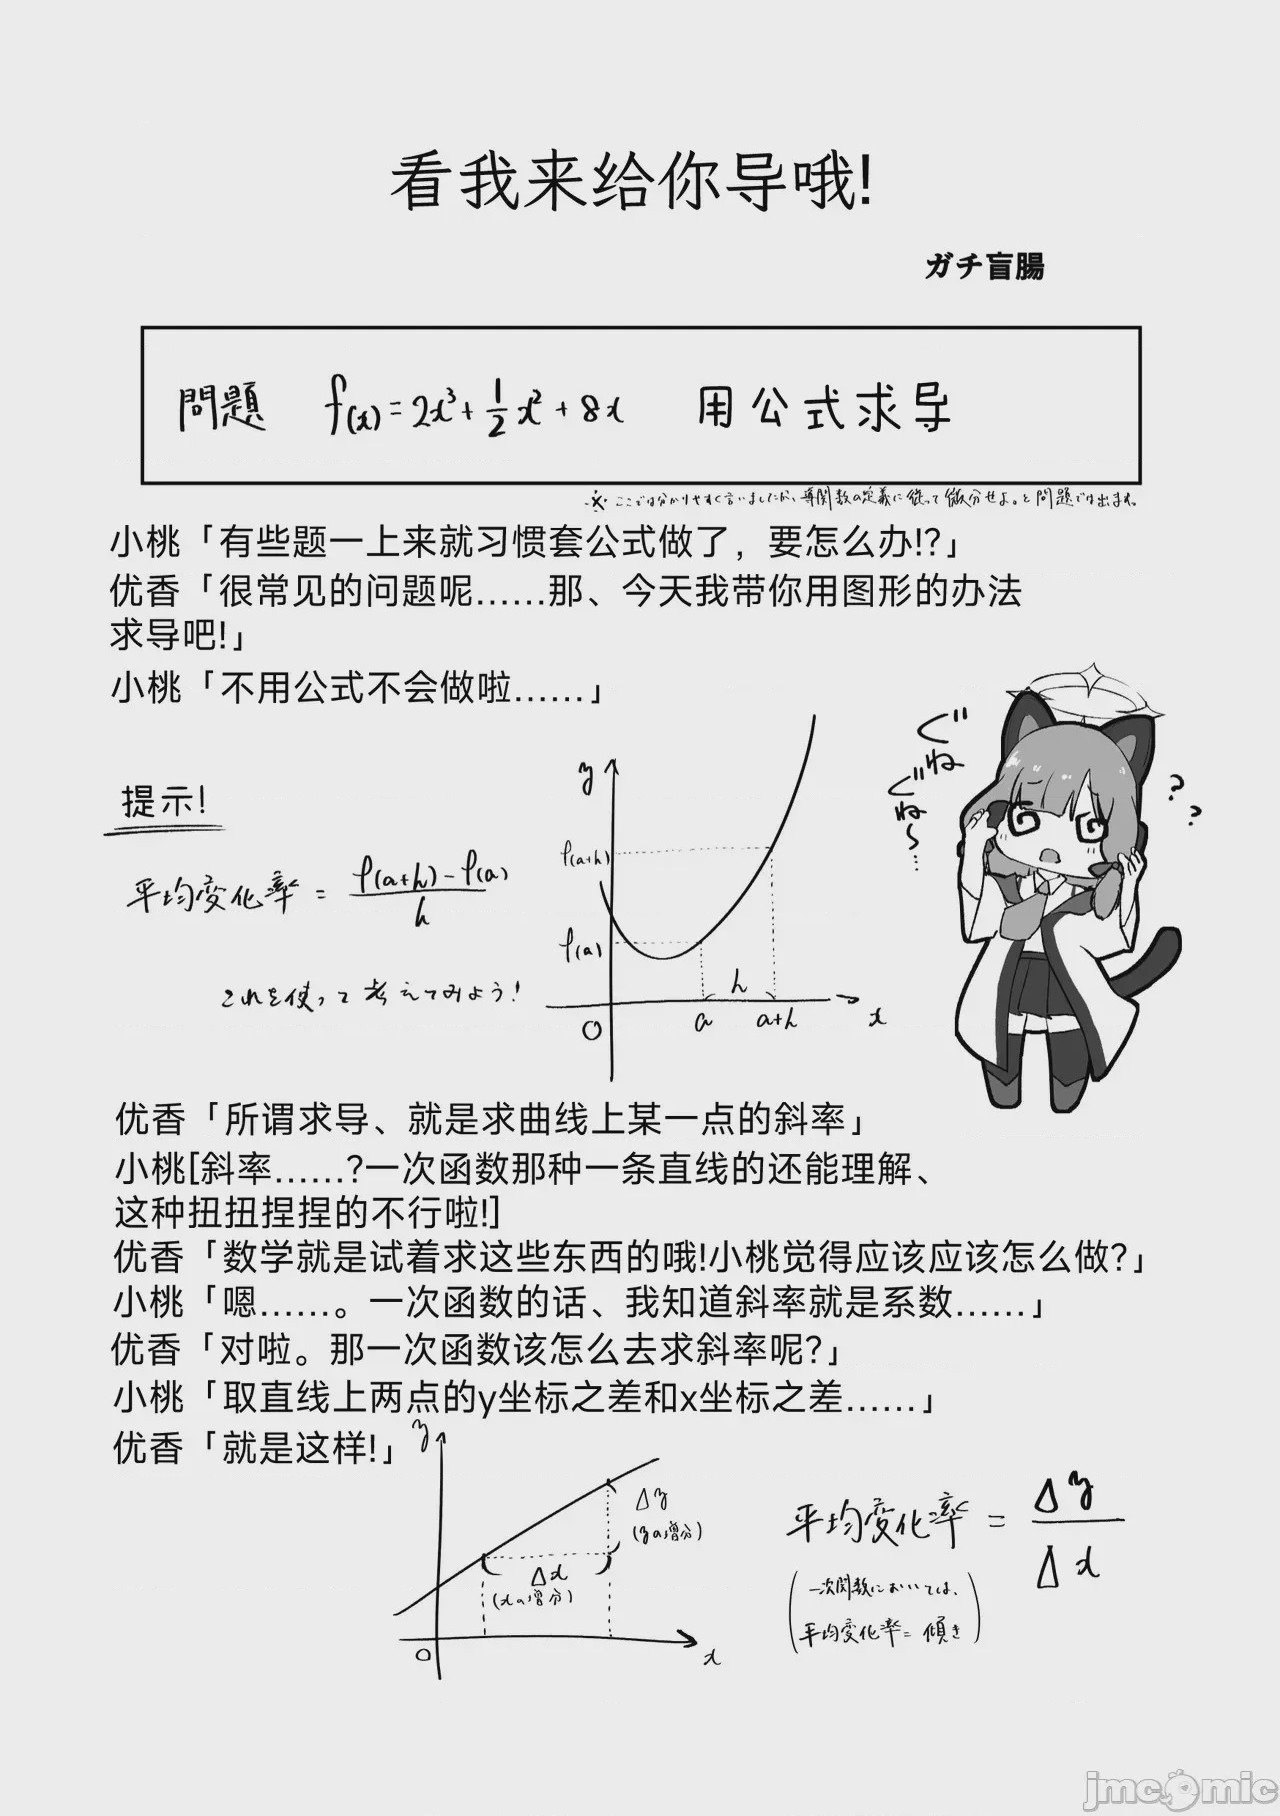 看我来给你导哦!
ガチ盲腸
問題 f(x)=2x³+½x²+8x 用公式求导
※ここでは分かりやすく言いましたが、導関数の定義に従って微分せよ。と問題では出ます。
小桃「有些题一上来就习惯套公式做了，要怎么办!?」
优香「很常见的问题呢……那、今天我带你用图形的办法
求导吧!」
小桃「不用公式不会做啦……」
提示!
平均变化率 = (f(a+h)-f(a))/h
これを使って考えてみよう!
y
f(a+h)
f(a)
h
O a a+h x
ぐね
ぐね〜…
? ?
优香「所谓求导、就是求曲线上某一点的斜率」
小桃[斜率……?一次函数那种一条直线的还能理解、
这种扭扭捏捏的不行啦!]
优香「数学就是试着求这些东西的哦!小桃觉得应该应该怎么做?」
小桃「嗯……。一次函数的话、我知道斜率就是系数……」
优香「对啦。那一次函数该怎么去求斜率呢?」
小桃「取直线上两点的y坐标之差和x坐标之差……」
优香「就是这样!」
y
Δy
(yの増分)
Δx
(xの増分)
O x
平均変化率 = Δy/Δx
(一次関数においては、
平均変化率=傾き)
jmcomic